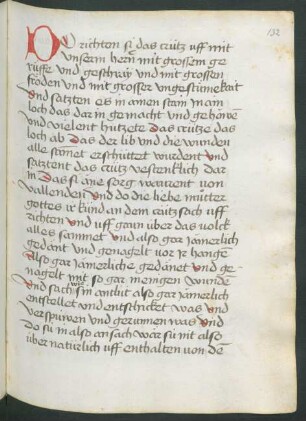 132
Do richten si das crütz uff mit
unserm hern mit grossem ge
rüffe vnd geschray vnd mit grossen
fröden vnd mit grosser vngestümekait
Vnd satzten es in ainen stain in ain
loch das dar in gemacht vnd gehowen
vnd vielent Das crütze das
loch ab Das der lib vnd die wunden
alle sament erschüttert wurdent Vnd
satztent das crütz vestenklich dar
in Das si ane sorg werent von
vallende Vnd do die liebe müter
gottes ir kind an dem crütz sach uff
richten vnd uff gann über das volck
alles samnet vnd also gar jamerlich
gedant vnd genagelt vor ir hange
Also gar jamerliche gedanet vnd ge
nagelt mit so gar menigen wunden
Vnd sach sin antlut also gar jamerlich
entstellet vnd entschicket was vnd
verspuwen vnd gerunnen was Vnd
do su in also ansach wär su nit also
über naturlich uff enthalten von de